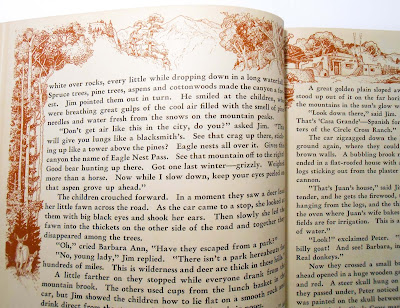 white over rocks, every little while dropping down in a long waterfall.
Spruce trees, pine trees, aspens and cottonwoods made the canyon a
est. Jim pointed them out in turn. He smiled at the children,
were breathing great gulps of the cool air filled with the smell of
needles and water fresh from the snows on the mountain peaks.
"Don't get air like this in the city, do you?" asked Jim. "This
will give you lungs like a blacksmith's. See that crag up there, stick-
ing up like a tower above the pines? Eagle nests all over it. Gives the
canyon the name of Eagle Nest Pass. See that mountain off to the right?
Good bear hunting up there. Got one last winter—grizzly. Weighed
more than a horse. Now while I slow down, keep your eyes peeled
that aspen grove up ahead."
The children crouched forward. In a moment they saw a deer
her little fawn across the road. As the car came to a stop, she looked
them with big black eyes and shook her ears. Then slowly she led
fawn into the thickets on the other side of the road and together
disappeared among the trees.
"Oh," cried Barbara Ann, "Have they escaped from a park?"
"No, young lady," Jim replied. "There isn't a park
hundreds of miles. This is wilderness and deer are thick in these
A little farther on they stopped while everyone drank from
mountain brook. The others used cups from the lunch basket in
car, but Jim showed the children how to lie flat on a smooth rock
drink direct from
A great golden plain sloped
stood up out of it on the far hori
the mountains in the sun's glow w
"Look down there," said Jim.
That's 'Casa Grande'—Spanish fo
ters of the Circle Cross Ranch."
The car zigzagged down the
ground again, where they could
brown walls. A bubbling brook
ended in a flat-roofed house with
logs sticking out from the plaster
cannon.
"That's Juan's house," said Ji
tender, and he gets the firewood,
hanging from the logs, and the
the oven where Juan's wife bakes
fields are for irrigation. This is a
out of water."
"Look!" exclaimed Peter.
billy goat! And see! Babies, in
Real donkeys."
Now they crossed a small b
ahead opened in a huge wooden g
and red. A steer skull hung on
they passed under, Peter notice
was painted on the skull betwe